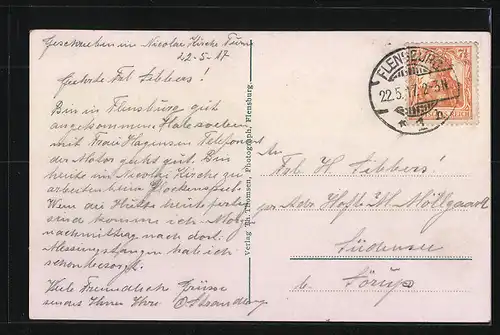 Geschrieben im Nicolai Kirche Turm
22-5-17
Geehrte Frl Sibbers!
Bin in Flensburg gut
angekommen Habe soeben
mit Frau Hagensen Telefoniert
der Motor geht gut. Bin
heute im Nicolai Kirche zu
arbeiten beim Glockenspiel
Wenn die heute fertig
sind komme ich Morg
nachmittag nach dort.
Messingstangen hab ich
schon besorgt.
Viele Freundliche Grüsse
sendet Ihnen Ihre
Verlag Th. Thomsen, Photograph, Flensburg
FLENSBURG
22.5.17. 2-3N
* 1 h
7½
An
Frl. H. Sibbers!
per Adr. Hofb. M. Möllgaard
Südensee
b. Sörup